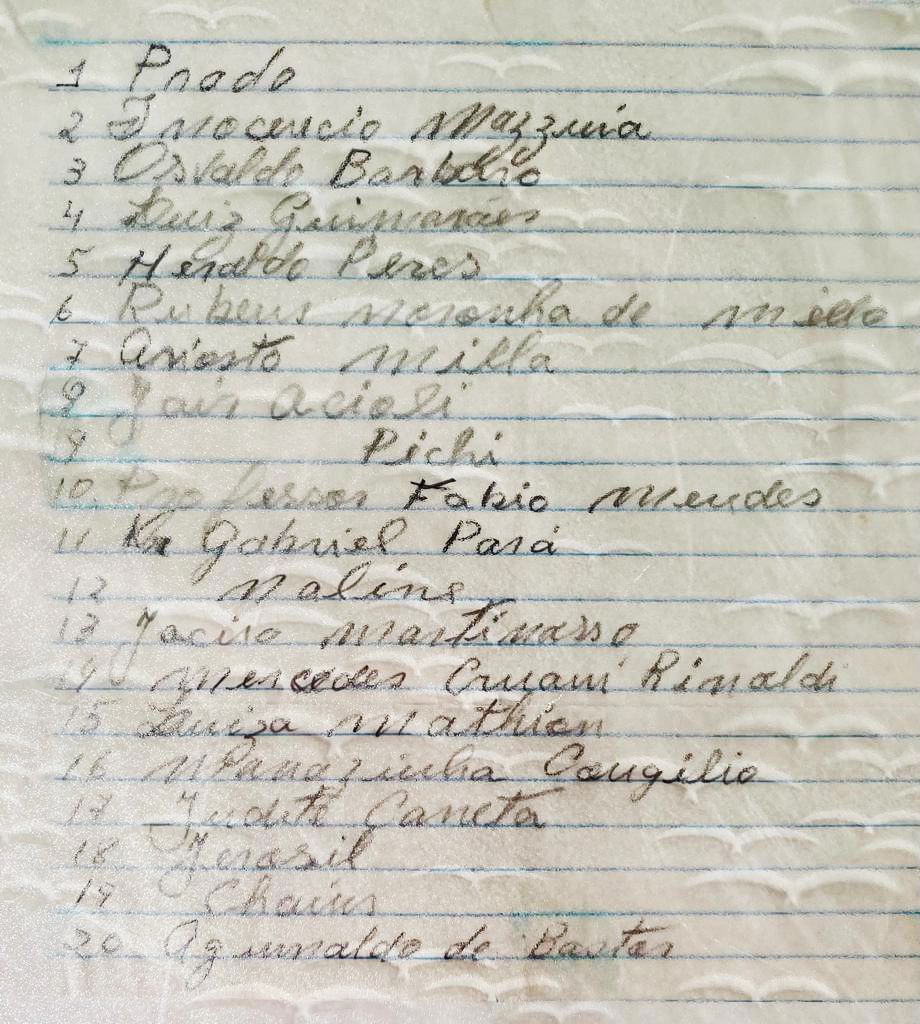 1 Prado
2 Inocencio Mazzuia
3 Osvaldo Barbério
4 Luiz Guimarães
5 Heraldo Peres
6 Rubens noronha de mello
7 Ariosto milla
8 Jair Acioli
9 Pichi
10 Professor Fabio mendes
11 Gabriel Pará
12 naline
13 Jaciro martinasso
14 mercedes Cruani Rinaldi
15 Luiza mathion
16 Congilio
17 Judite Caneta
18
19 Chains
20 Aguinaldo de Bastos